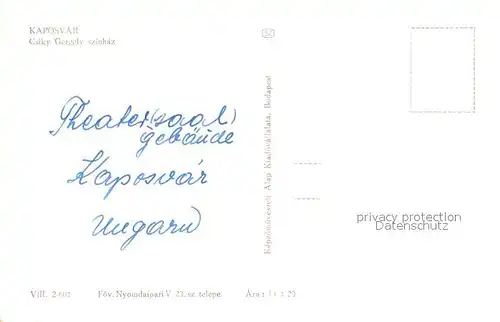 KAPOSVÁR
Csiky Gergely színház
Theater(saal)
gebäude
Kaposvár
Ungarn
Képzőművészeti Alap Kiadóvállalata, Budapest
privacy protection
Datenschutz
Főv. Nyomdaipari V. 23. sz. telepe
Ára: